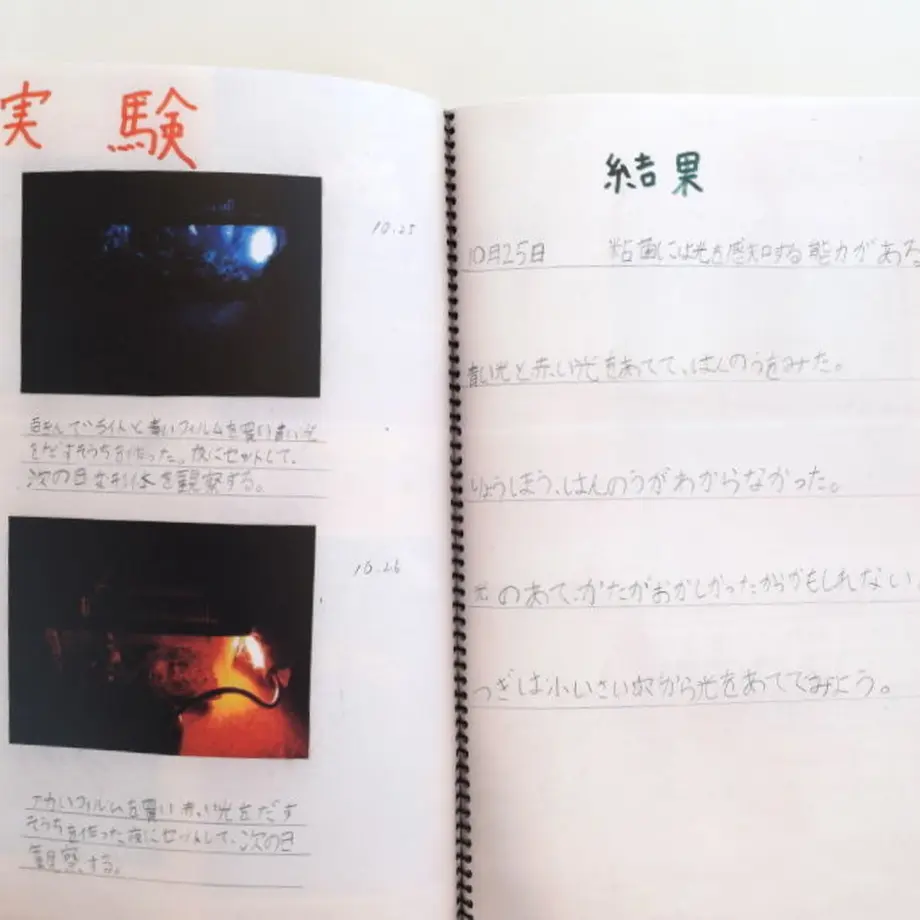 実験
10.25
自分でライトと青いフィルムを買い青い光
をだすそうちを作った。夜にセットして、
次の日変形体を観察する。
10.26
赤いフィルムを買い赤い光をだす
そうちを作った夜にセットして、次の日
観察する。
結果
10月25日 粘菌には光を感知する能力がある
青い光と赤い光をあてて、はんのうをみた。
りょうほう、はんのうがわからなかった。
光のあてかたがおかしかったからかもしれない
つぎは小いさい穴から光をあててみよう。